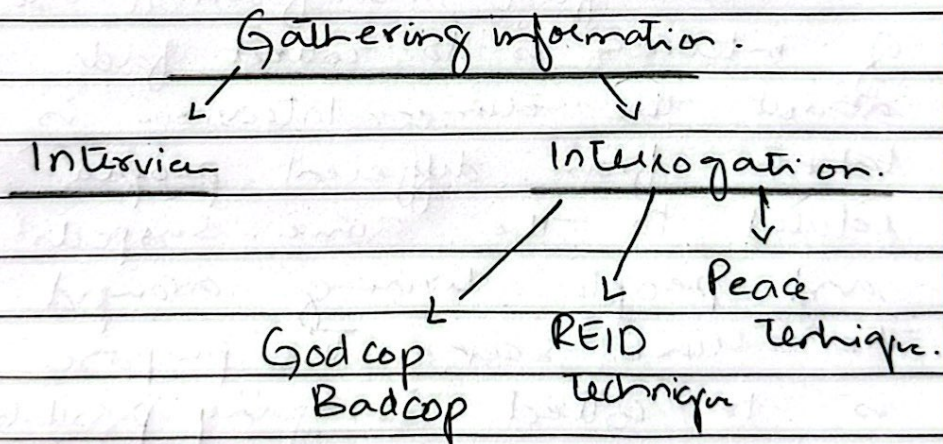 Gathering information.
Interview
Interrogation.
Godcop
Badcop
REID
Technique
Peace
Terhique.